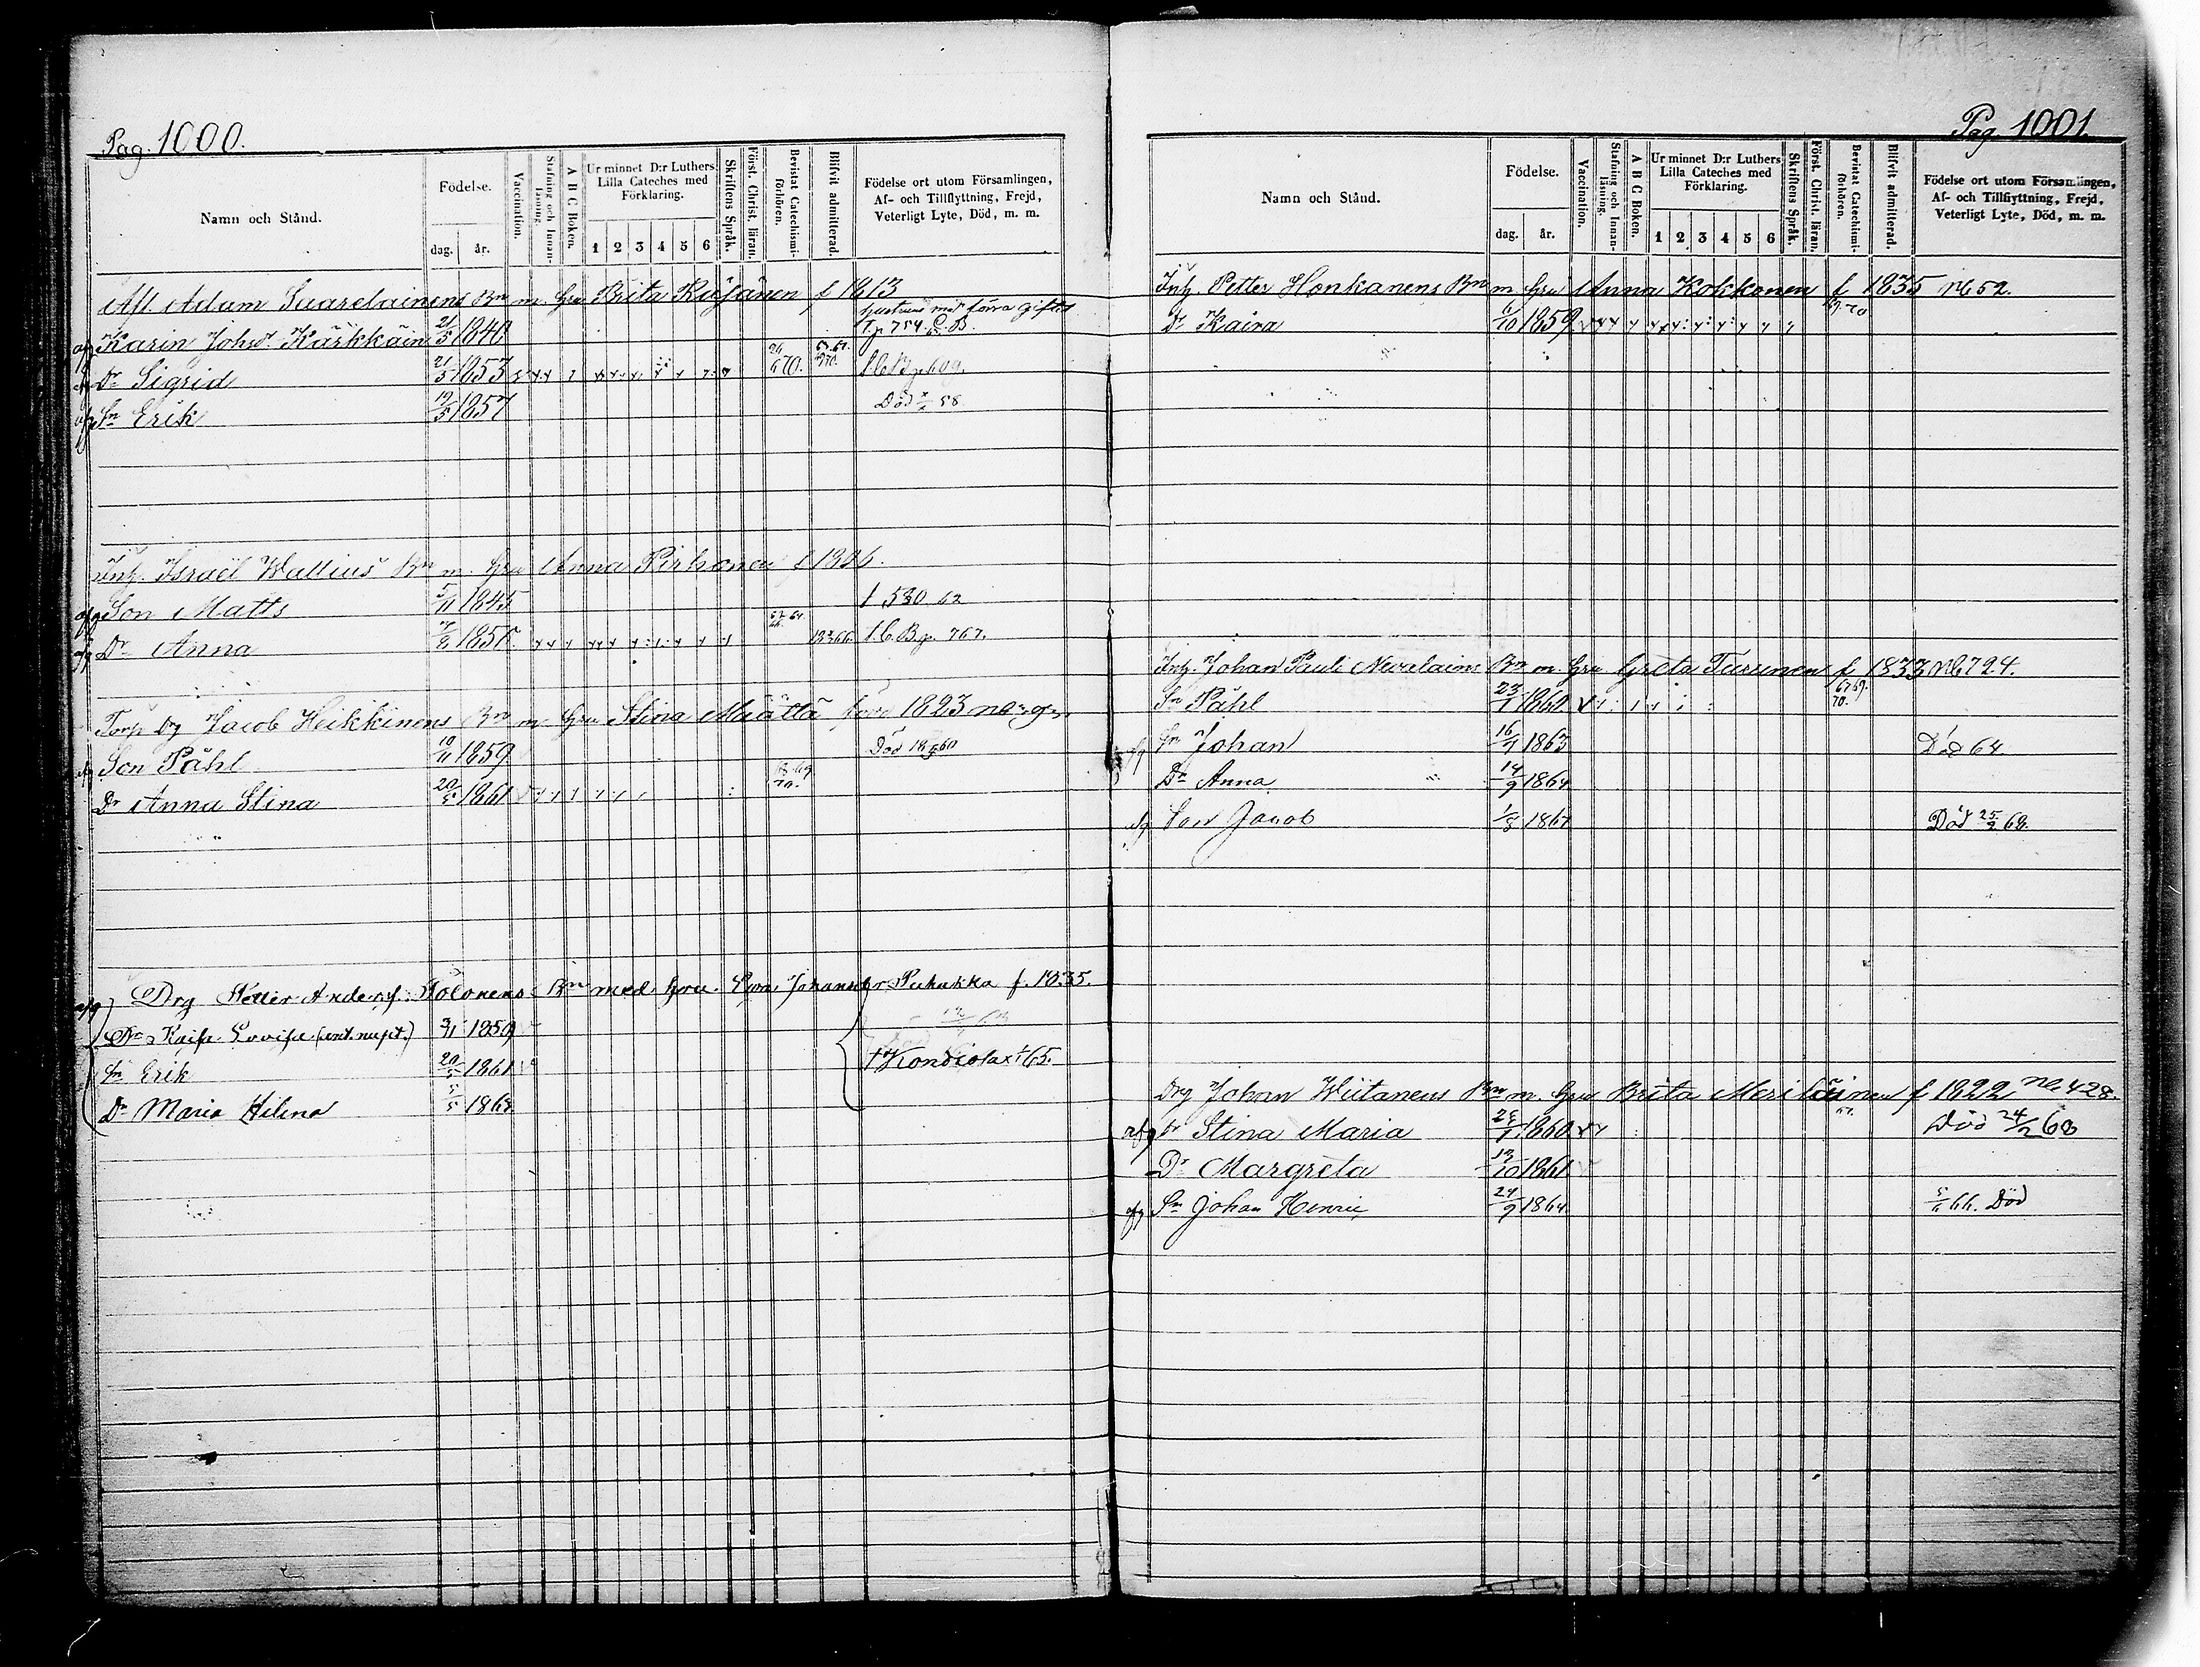 Pag. 1000.
Namn och Stånd.
Födelse.
dag. år.
Vaccination.
Stafning och Innanläsning.
A B C Boken.
Ur minnet D:r Luthers Lilla Cateches med Förklaring.
1 2 3 4 5 6
Skriftens Språk.
Först. Christ. läran.
Bevistat Catechismiförhören.
Blifvit admitterad.
Födelse ort utom Församlingen, Af- och Tillflyttning, Frejd, Veterligt Lyte, Död, m. m.
Afl. Adam Suarelainens Bn m. hu Brita f 1813
Karin Johsdr Kärkkäin 21/5 1840 p 754 C. B.
Dr Sigrid 21/5 1853
afg Sn Erik 19/5 1857 Död 58
Inh. Israël Wallius Bn m. hu Anna Pirhonen f 1806.
afg Son Matts 5/11 1845 f 530 62
afg Dr Anna 1850 f. C. B p. 767.
Torp dg Jacob Heikkinens Bn m hu Stina Määttä 1823
Son Påhl 10/11 1859 Död 60
Dr Anna Stina 20/5 1861
afg Drg Petter Anders. Tolonens Bn med hru. Ewa Johansdr Puhakka f. 1835.
Dr Kaisa Lovisa (ant. nupt.) 3/11 1859
Sn Erik 20/5 1861
Dr Maria Helena 5/5 1863
Kondiolax 65.
Pag. 1001.
Namn och Stånd.
Födelse.
dag. år.
Vaccination.
Stafning och Innanläsning.
A B C Boken.
Ur minnet D:r Luthers Lilla Cateches med Förklaring.
1 2 3 4 5 6
Skriftens Språk.
Först. Christ. läran.
Bevistat Catechismiförhören.
Blifvit admitterad.
Födelse ort utom Församlingen, Af- och Tillflyttning, Frejd, Veterligt Lyte, Död, m. m.
Inh. Petter Honkanens Bn m hu Anna Kokkonen f 1835 No 52.
Dr Kaira 1859
Inh. Johan Pauli Nevalains Bn m. hu Greta Turunen f 1833 No 794.
Sn Påhl 23/1 1860
Sn Johan 16/7 1863 Död 64
Dr Anna 14/9 1864
Son Jacob 1/8 1867 Död 25/2 68.
Drg Johan Wiitanens Bn m. hu Brita Meriläinen f 1822 No 428.
afg Dr Stina Maria 1860 Död 24/2 68
Dr Margreta 13/10 1861
afg Sn Johan Henric 24/9 1864 66. Död